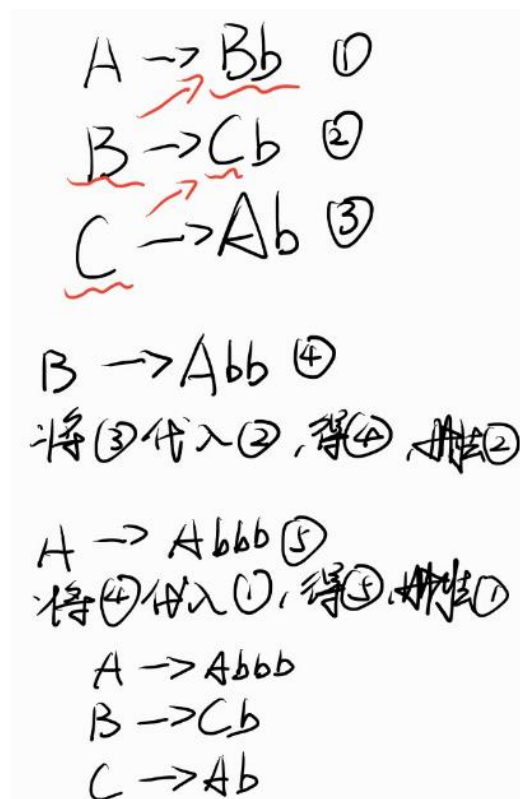 A → Bb ①
B → Cb ②
C → Ab ③
B → Abb ④
将③代入②,得④,删去②
A → Abbb ⑤
将④代入①,得⑤,删去①
A → Abbb
B → Cb
C → Ab